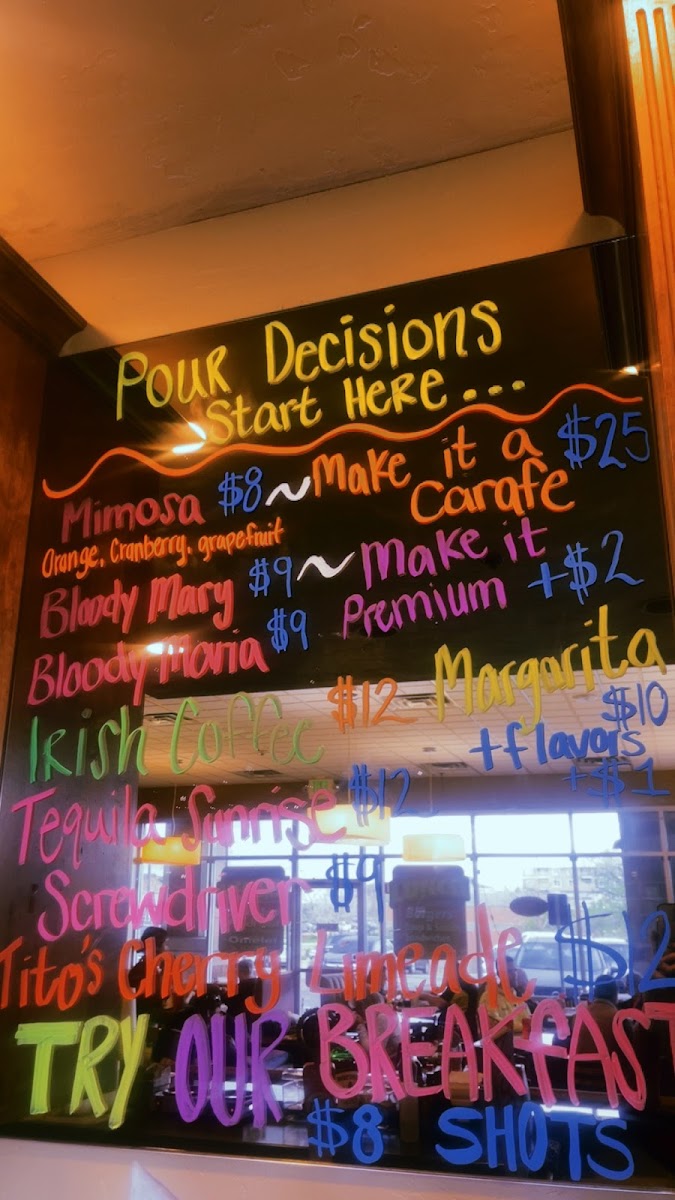 Pour Decisions
Start Here...
Mimosa $8 ~ Make it a Carafe $25
Orange, Cranberry, grapefruit
Bloody Mary $9 ~ Make it Premium +$2
Bloody Maria $9
Irish Coffee $12
Margarita $10
+flavors +$1
Tequila Sunrise $12
Screwdriver $9
Tito's Cherry Limeade $12
TRY OUR BREAKFAST
$8 SHOTS
Burgers